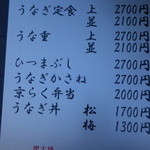 うなぎ定食 上 2700円
並 2100円
うな重 上 2700円
並 2100円
ひつまぶし 2700円
うなぎかさね 2700円
京らく弁当 2000円
うなぎ丼 松 1700円
梅 1300円